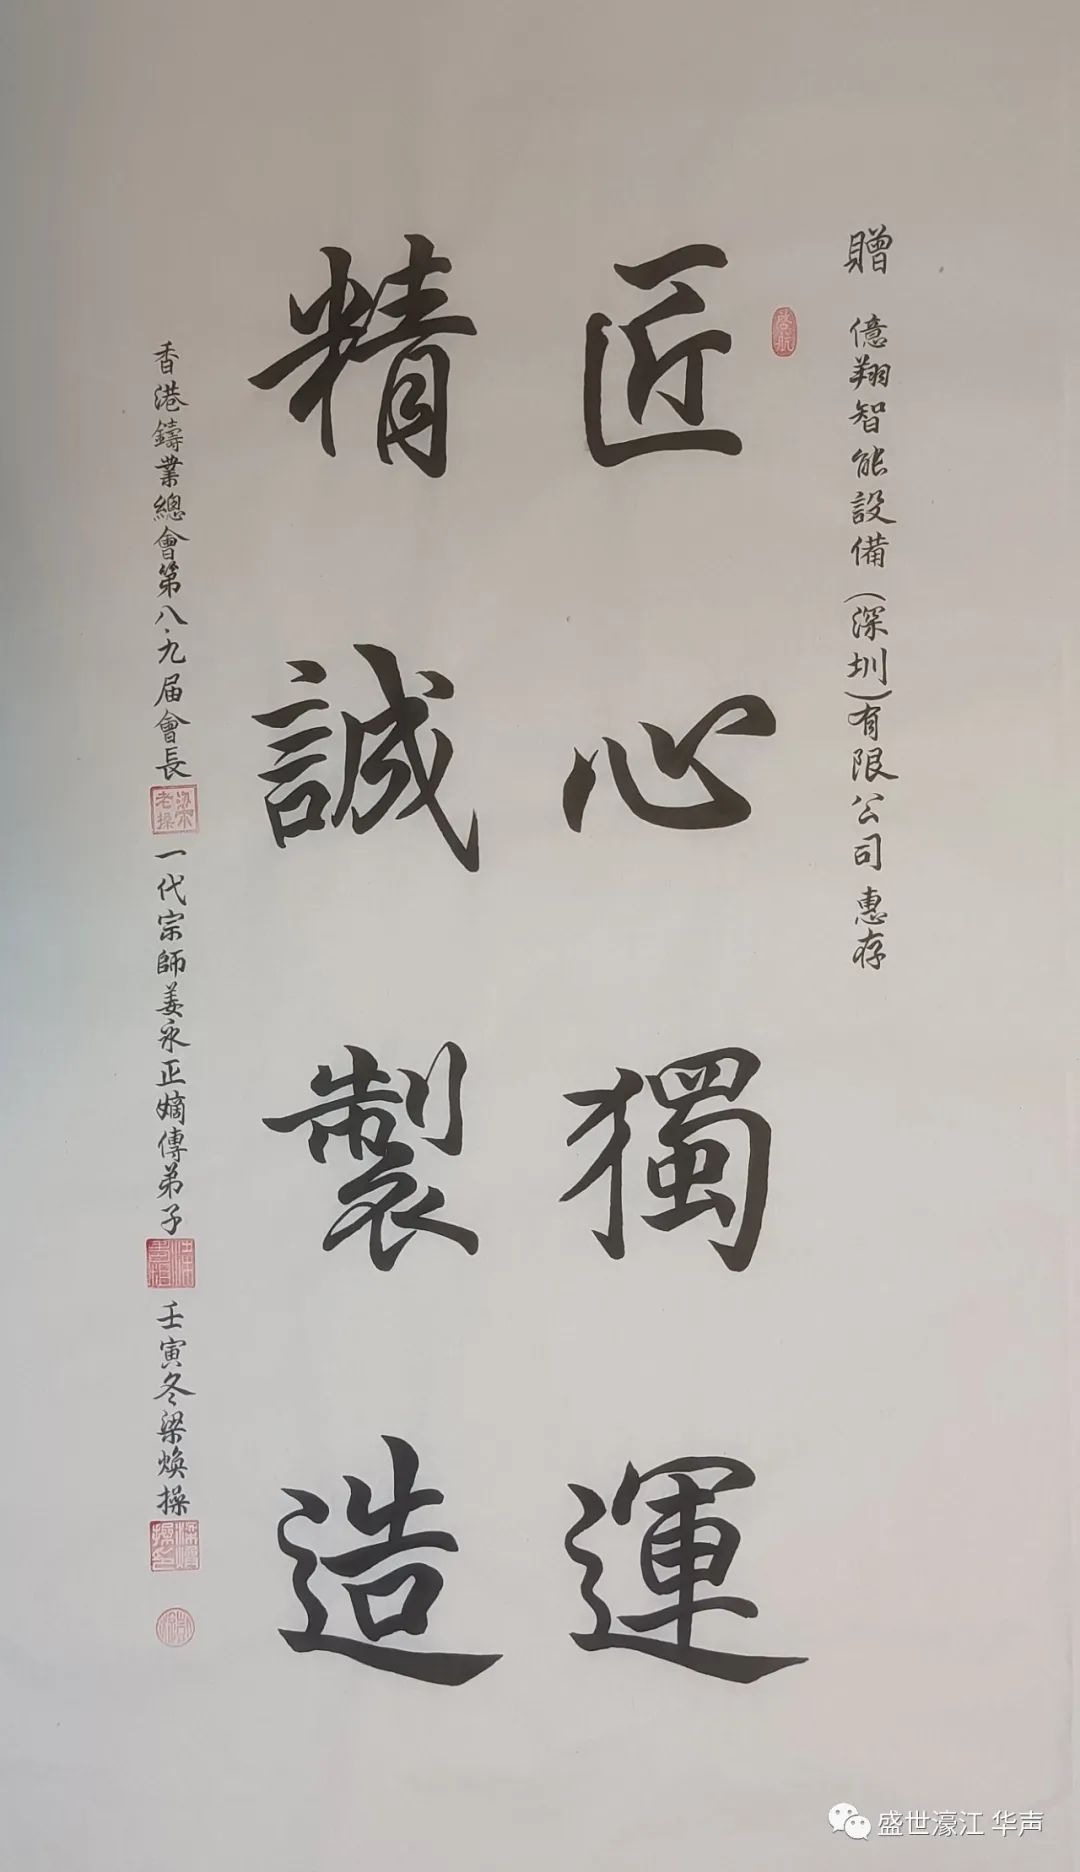 贈 億翔智能設備(深圳)有限公司 惠存
啓航
匠心獨運
精誠製造
香港鑄業總會第八·九届會長
一代宗師姜永正嫡傳弟子
壬寅冬梁煥操
盛世濠江 华声